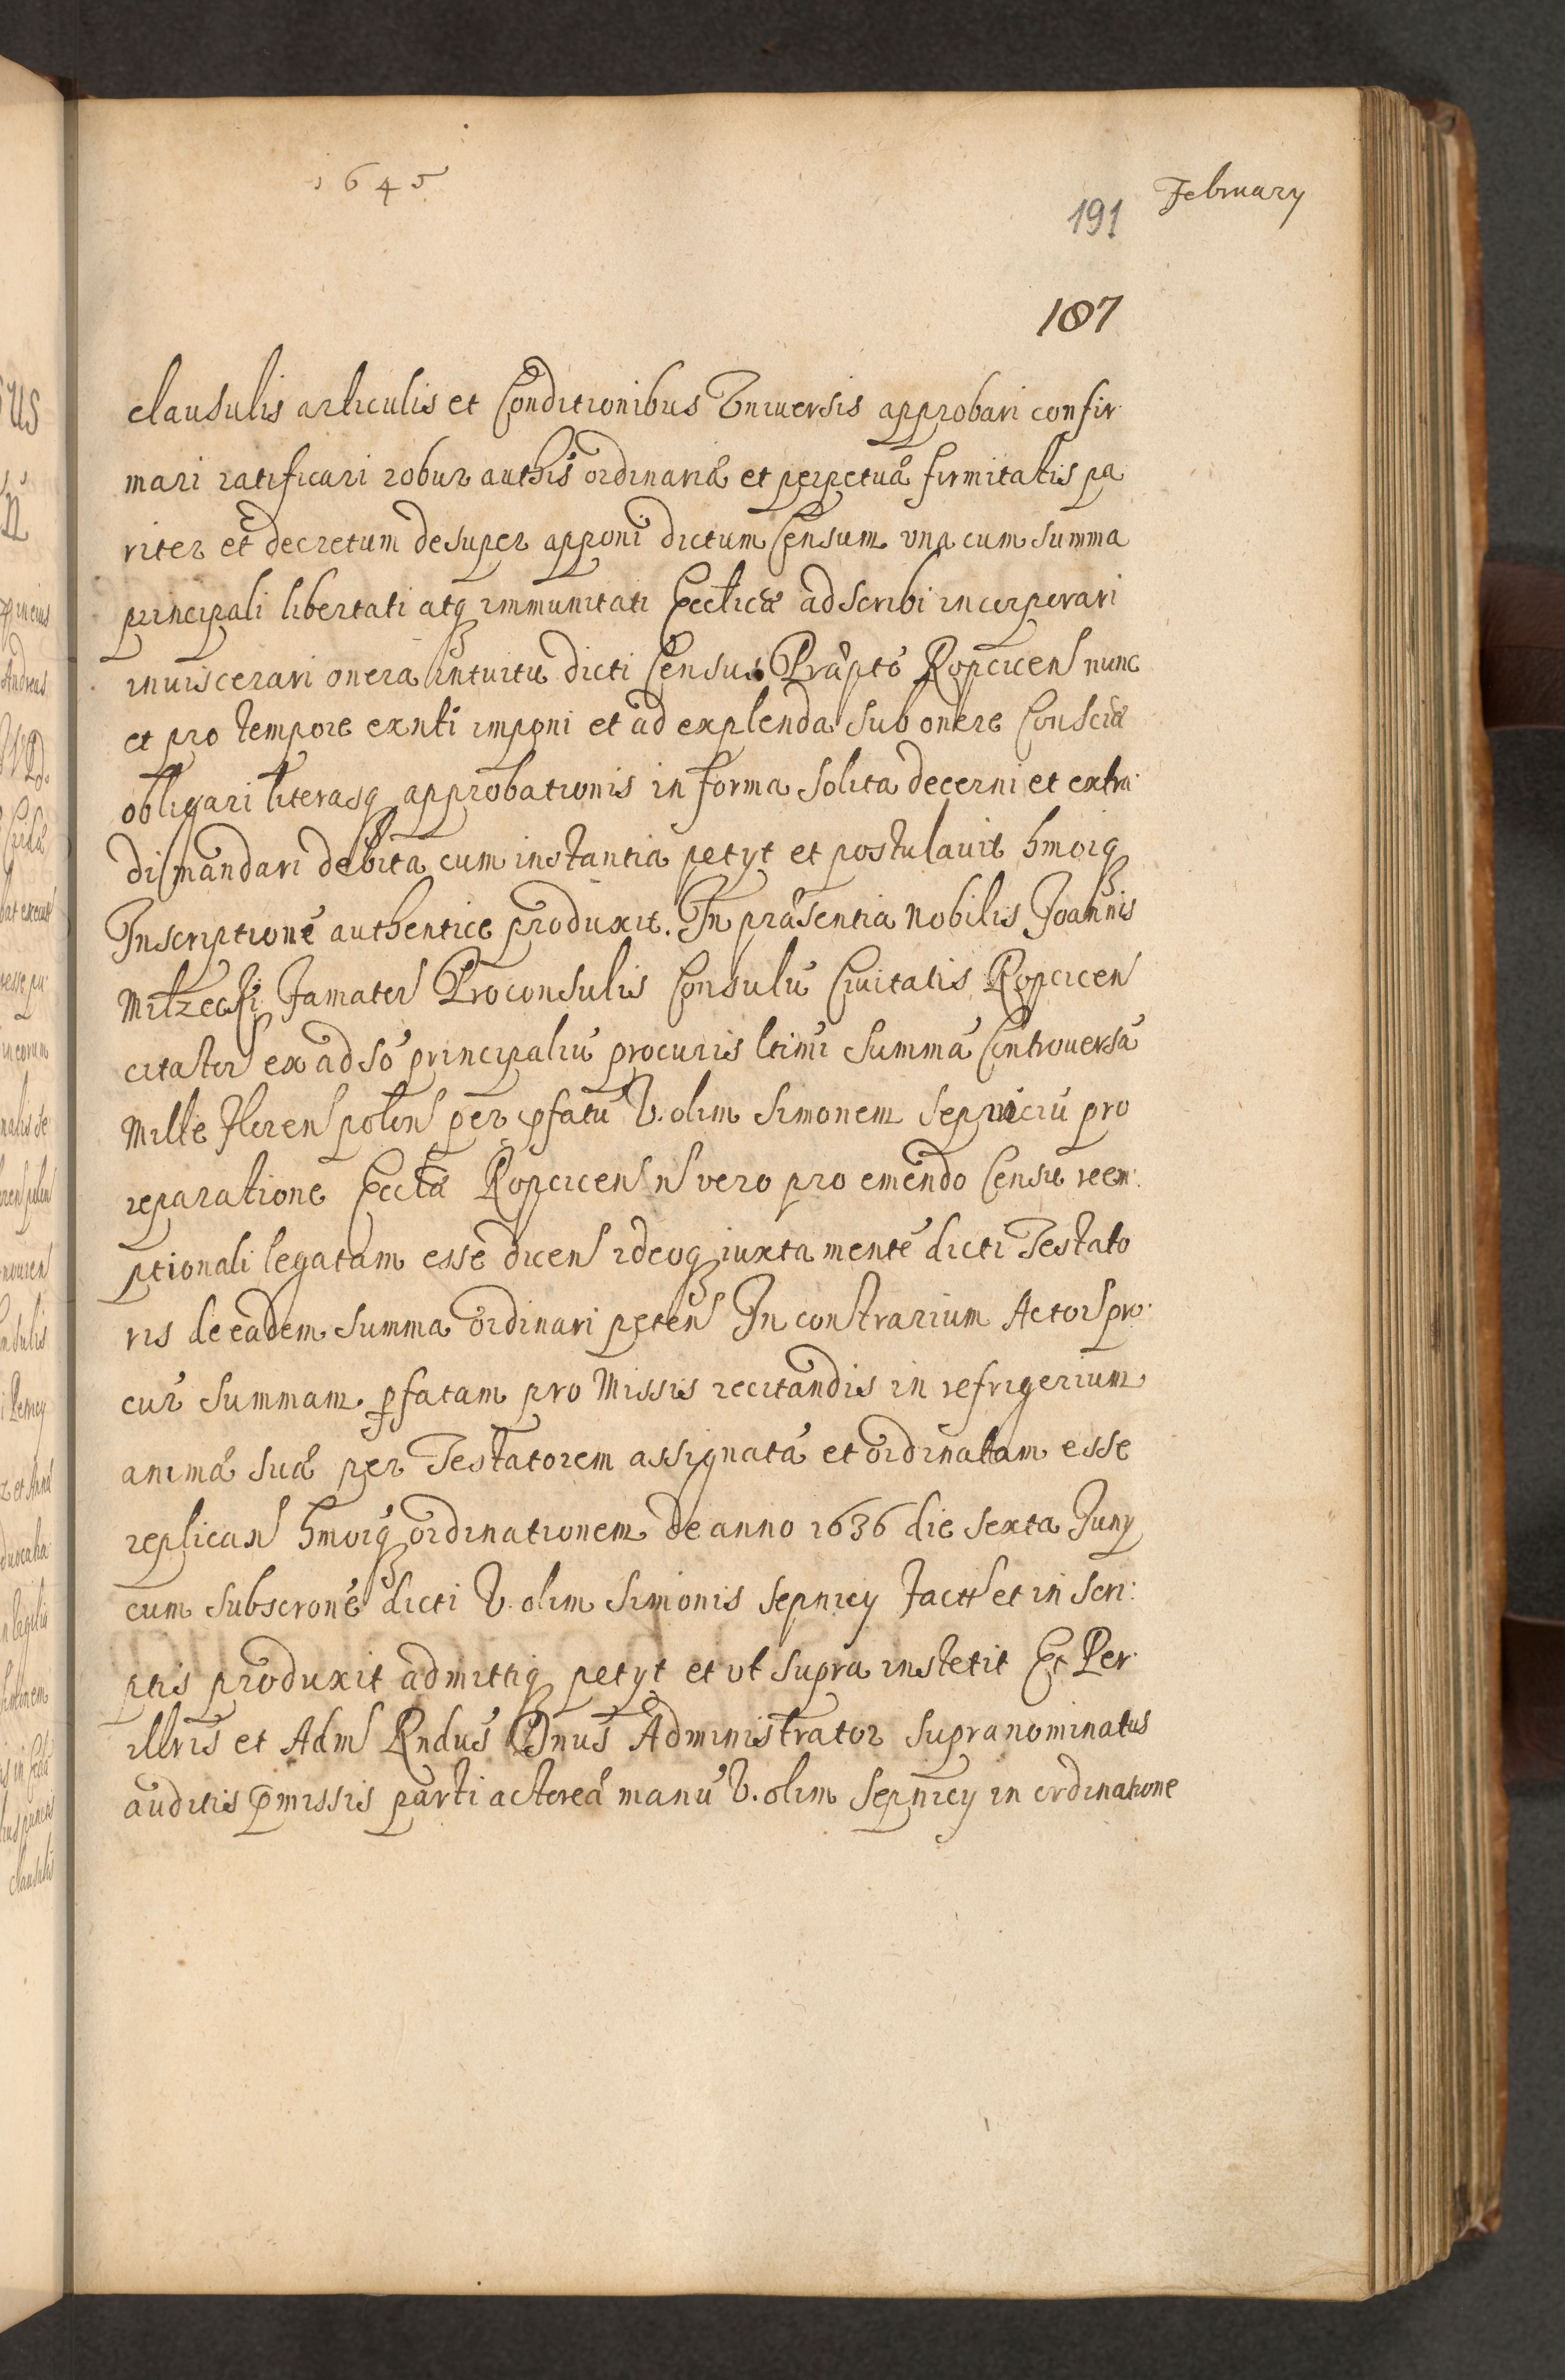 1645
February
191
187
clausulis articulis et Conditionibus Vniuersis approbari confir
mari ratificari robur authis ordinariæ et perpetuæ firmitatis pa
riter et decretum desuper apponi dictum Censum vna cum summa
principali libertati atq immunitati Ecclicæ adscribi incorporari
inuiscerari onera intuitu dicti Census Præpto Ropcicen nunc
et pro tempore exnti imponi et ad explenda sub onere Consciæ
obligari literasq approbationis in forma solita decerni et extra
di mandari debita cum instantia petyt et postulauit hmoiq
Inscriptione authentice produxit. In præsentia Nobilis Joannis
Famater Proconsulis Consulu Ciuitatis Ropcicen
citator ex adso principaliu procuris ltimi Summa Controuersa
Mille Floren polon per pfatu V. olim Simonem Sepniciu pro
reparatione Eccliæ Ropcicen n vero pro emendo Censu reem
ptionali legatam esse dicen ideoq iuxta mente dicti Testato
ris de eadem summa ordinari peten In contrarium Actor pro
cur Summam pfatam pro Missis recitandis in refrigerium
animæ suæ per Testatorem assignata et ordinatam esse
replican hmoiq ordinationem de anno 1636 die sexta Juny
cum subscrone dicti V. olim Simonis Sepnicy et in scri
ptis produxit admittiq petyt et vt supra institit Et Per
illris et Adm Rndus Dnus Administrator supranominatus
auditis pmissis parti actoreæ manu V. olim Sepnicy in ordinatione